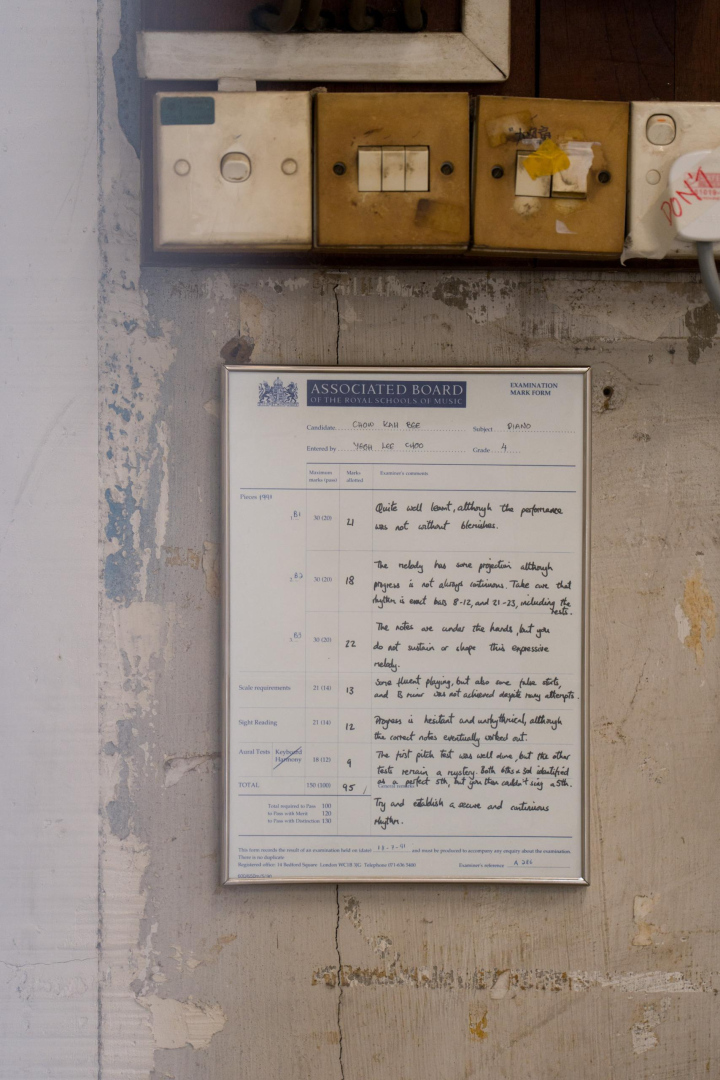 DONA
ASSOCIATED BOARD
OF THE ROYAL SCHOOLS OF MUSIC
EXAMINATION
MARK FORM
Candidate CHOW KAH BEE Subject PIANO
Entered by YEOH LEE CHOO Grade 4
Maximum marks (pass) Marks allotted Examiner's comments
Pieces
B1 30 (20) 21 Quite well learnt, although the performance
was not without blemishes.
B2 30 (20) 18 The melody has some projection although
progress is not always continuous. Take care that
rhythm is exact bars 8-12, and 21-23, including the
rests.
B3 30 (20) 22 The notes are under the hands, but you
do not sustain or shape this expressive
melody.
Scale requirements 21 (14) 13 Some fluent playing, but also some false starts,
and B minor was not achieved despite many attempts.
Sight Reading 21 (14) 12 Progress is hesitant and unrhythmical, although
the correct notes eventually worked out.
Aural Tests Keyboard Harmony 18 (12) 9 The first pitch test was well done, but the other
tests remain a mystery. Both 6ths & 3rd identified
as a perfect 5th, but you then couldn't sing a 5th.
TOTAL 150 (100) 95
Total required to Pass 100
to Pass with Merit 120
to Pass with Distinction 130
Try and establish a secure and continuous
rhythm.
This form records the result of an examination held on (date) and must be produced to accompany any enquiry about the examination.
There is no duplicate
Registered office: 14 Bedford Square London WC1B 3JG Telephone 071-636 5400 Examiner's reference